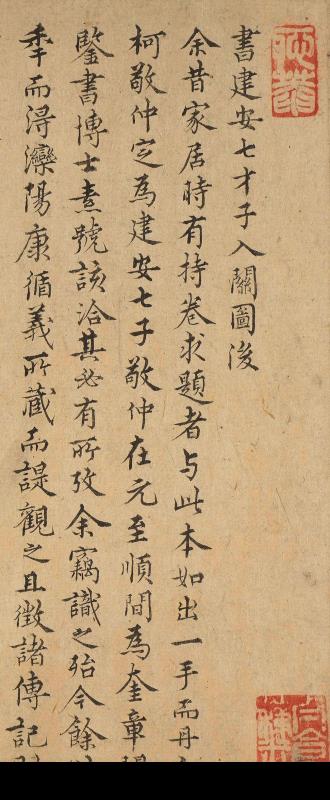 書建安七才子入關圖後
余昔家居時有持卷求題者与此本如出一手而丹
柯敬仲定為建安七子敬仲在元至順間為奎章閣
鑒書博士素號該洽其必有所攷余竊識之殆今餘
年而淂灤陽康循義所蔵而諟觀之且徵諸傳記